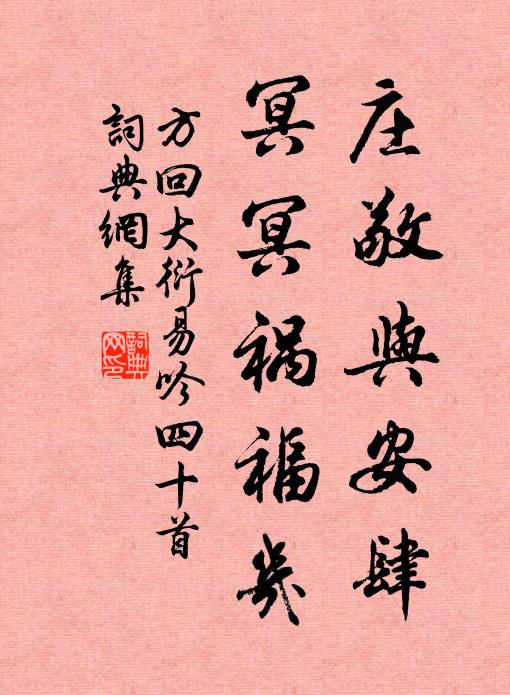 庄敬與安肆
冥冥祸福几
方回大衍易吟四十首
詞典網集
詞典網印